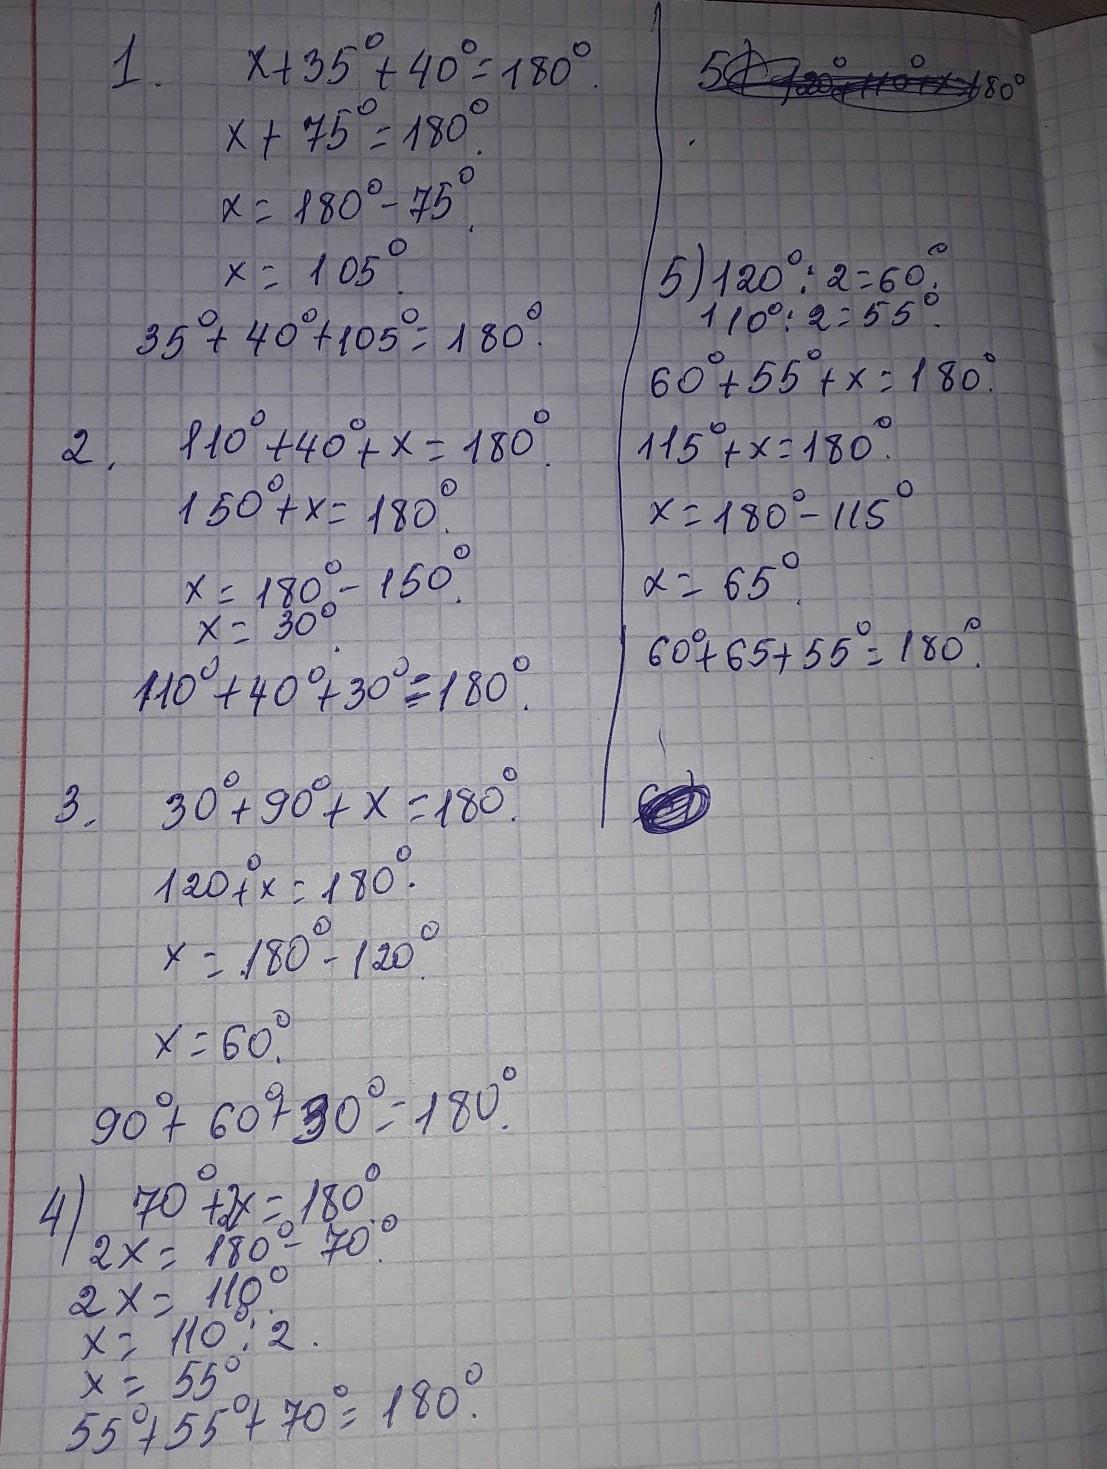 1. x+35°+40°=180°.
x+75°=180°.
x=180°-75°.
x=105°.
35°+40°+105°=180°.
2. 110°+40°+x=180°.
150°+x=180°.
x=180°-150°.
x=30°.
110°+40°+30°=180°.
3. 30°+90°+x=180°.
120+°x=180°.
x=180°-120°.
x=60°.
90°+60°+30°=180°.
4) 70°+2x=180°.
2x=180°-70°.
2x=110°.
x=110°:2.
x=55°
55°+55°+70°=180°.
5) 120°+110°+x=180°
5) 120°:2=60°.
110°:2=55°.
60°+55°+x=180°.
115°+x=180°.
x=180°-115°
x=65°.
60°+65+55°=180°.